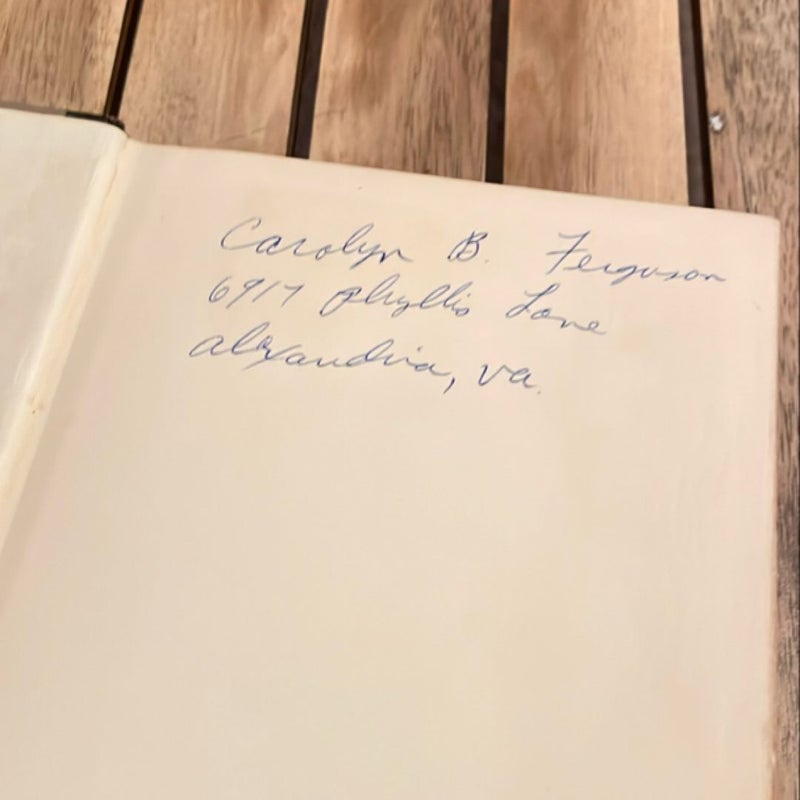 Carolyn B. Ferguson
6917 Phyllis Lane
Alexandria, Va.